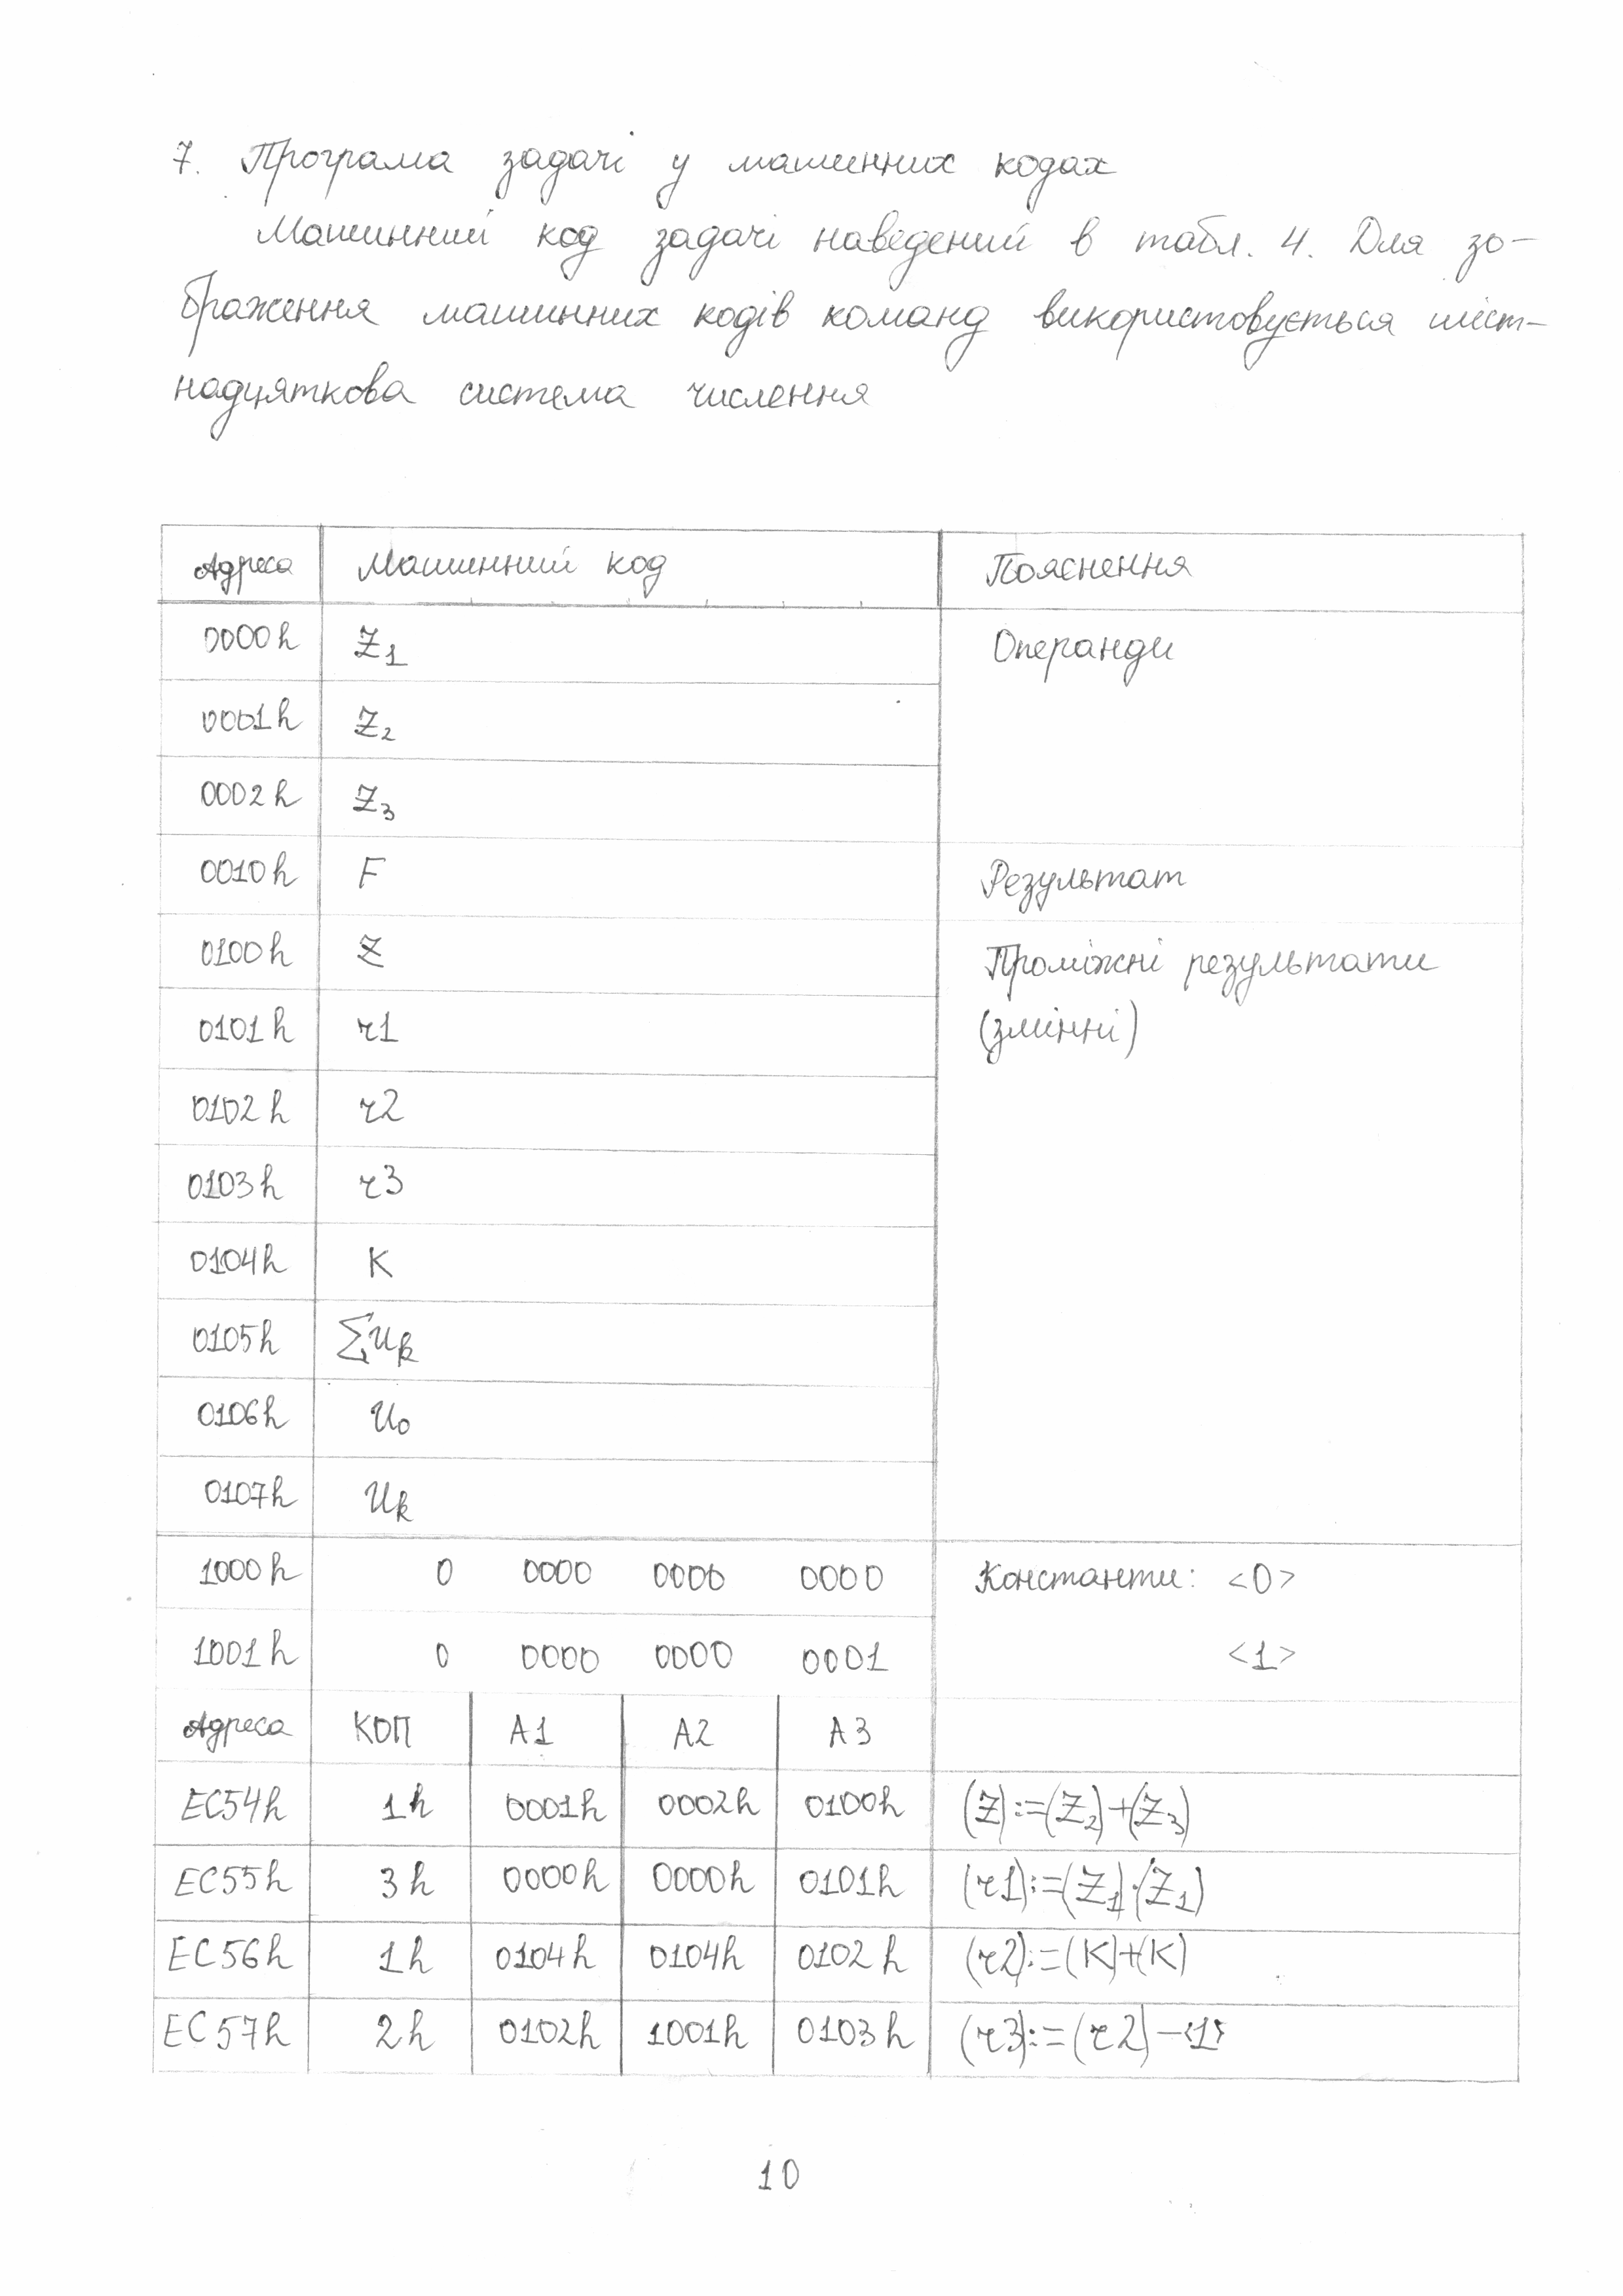 7. Програма задачі у машинних кодах
Машинний код задачі наведений в табл. 4. Для зо-
браження машинних кодів команд використовується шіст-
надцяткова система числення
Адреса Машинний код Пояснення
0000h Z1 Операнди
0001h Z2
0002h Z3
0010h F Результат
0100h Z Проміжні результати
0101h r1 (змінні)
0102h r2
0103h r3
0104h K
0105h ∑Uk
0106h U0
0107h Uk
1000h 0 0000 0000 0000 Константи: <0>
1001h 0 0000 0000 0001 <1>
Адреса КОП А1 А2 А3
EC54h 1h 0001h 0002h 0100h (Z):=(Z2)+(Z3)
EC55h 3h 0000h 0000h 0101h (r1):=(Z1)·(Z1)
EC56h 1h 0104h 0104h 0102h (r2):=(K)+(K)
EC57h 2h 0102h 1001h 0103h (r3):=(r2)-<1>
10